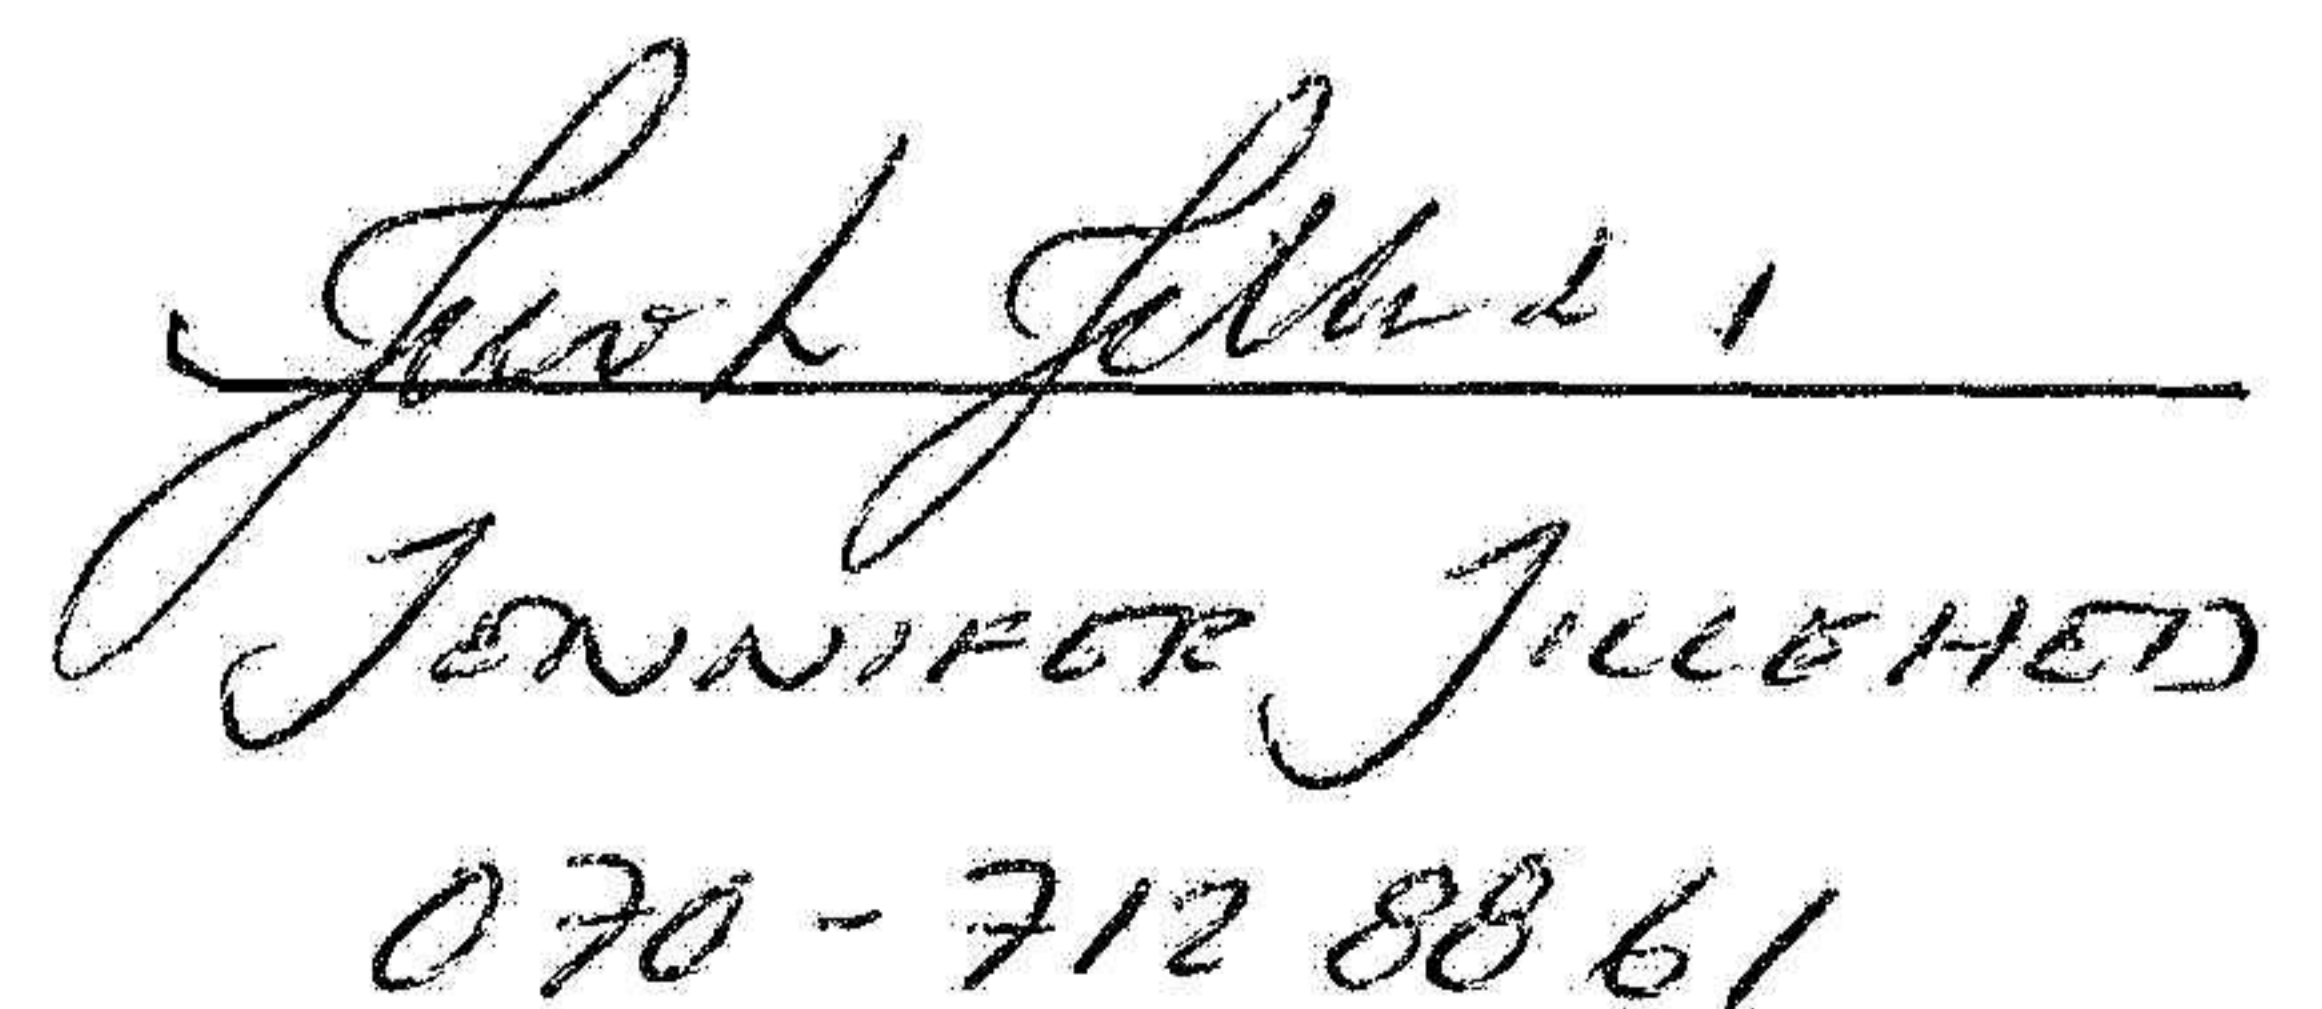 JENNIFER JILLEHED
070-712 88 61